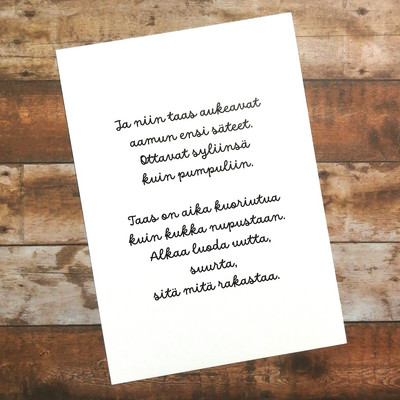 Ja niin taas aukeavat
aamun ensi säteet.
Ottavat syliinsä
kuin pumpuliin.
Taas on aika kuoriutua
kuin kukka nupustaan.
Alkaa luoda uutta,
suurta,
sitä mitä rakastaa.